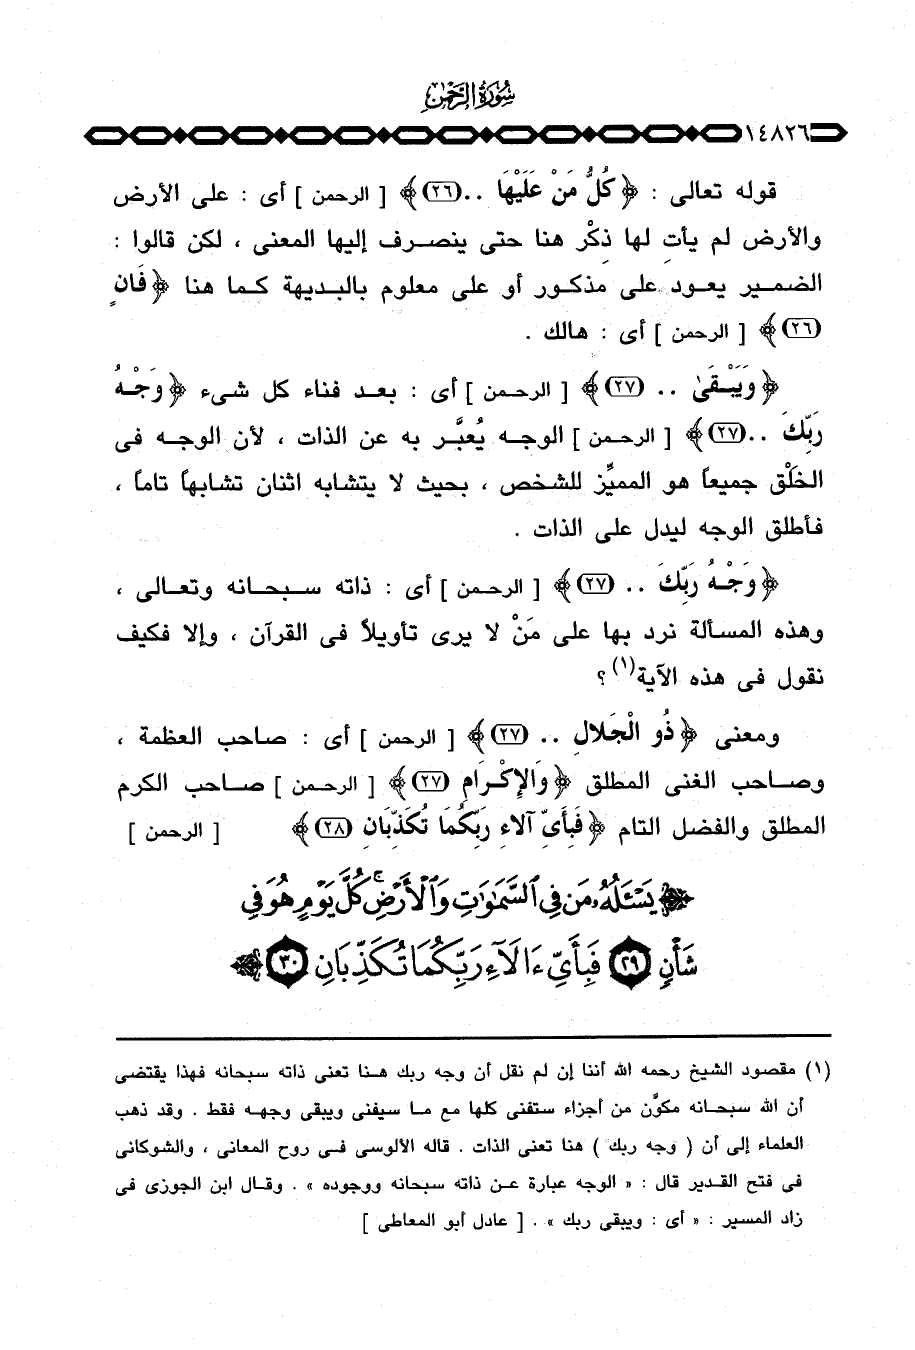 سورة الرحمن
١٤٨٢٦
قوله تعالى : ﴿ كُلُّ مَنْ عَلَيْهَا ..(٢٦)﴾ [ الرحمن ] أى : على الأرض
والأرض لم يأتِ لها ذِكْر هنا حتى ينصرف إليها المعنى ، لكن قالوا :
الضمير يعود على مذكور أو على معلوم بالبديهة كما هنا ﴿ فَانٍ
(٢٦)﴾ [ الرحمن ] أى : هالك .
﴿ وَيَبْقَىٰ .. (٢٧)﴾ [ الرحمن ] أى : بعد فناء كل شىء ﴿ وَجْهُ
رَبِّكَ ..(٢٧)﴾ [ الرحمن ] الوجه يُعبَّر به عن الذات ، لأن الوجه فى
الخَلْق جميعاً هو المميِّز للشخص ، بحيث لا يتشابه اثنان تشابهاً تاماً ،
فأطلق الوجه ليدل على الذات .
﴿ وَجْهُ رَبِّكَ .. (٢٧)﴾ [ الرحمن ] أى : ذاته سبحانه وتعالى ،
وهذه المسألة نرد بها على مَنْ لا يرى تأويلاً فى القرآن ، وإلا فكيف
نقول فى هذه الآية(١) ؟
ومعنى ﴿ ذُو الْجَلَالِ .. (٢٧)﴾ [ الرحمن ] أى : صاحب العظمة ،
وصاحب الغنى المطلق ﴿ وَالإِكْرَامِ (٢٧)﴾ [ الرحمن ] صاحب الكرم
المطلق والفضل التام ﴿ فَبِأَىِّ آلاءِ رَبِّكُمَا تُكَذِّبَانِ (٢٨)﴾ [ الرحمن ]
﴿ يَسْـَٔلُهُۥ مَن فِى ٱلسَّمَٰوَٰتِ وَٱلْأَرْضِ ۚ كُلَّ يَوْمٍ هُوَ فِى
شَأْنٍ (٢٩) فَبِأَىِّ ءَالَآءِ رَبِّكُمَا تُكَذِّبَانِ (٣٠) ﴾
(١) مقصود الشيخ رحمه الله أننا إن لم نقل أن وجه ربك هنا تعنى ذاته سبحانه فهذا يقتضى
أن الله سبحانه مكوَّن من أجزاء ستفنى كلها مع ما سيفنى ويبقى وجهه فقط . وقد ذهب
العلماء إلى أن ( وجه ربك ) هنا تعنى الذات . قاله الألوسى فى روح المعانى ، والشوكانى
فى فتح القدير قال : « الوجه عبارة عن ذاته سبحانه ووجوده » . وقال ابن الجوزى فى
زاد المسير : « أى : ويبقى ربك » . [ عادل أبو المعاطى ]